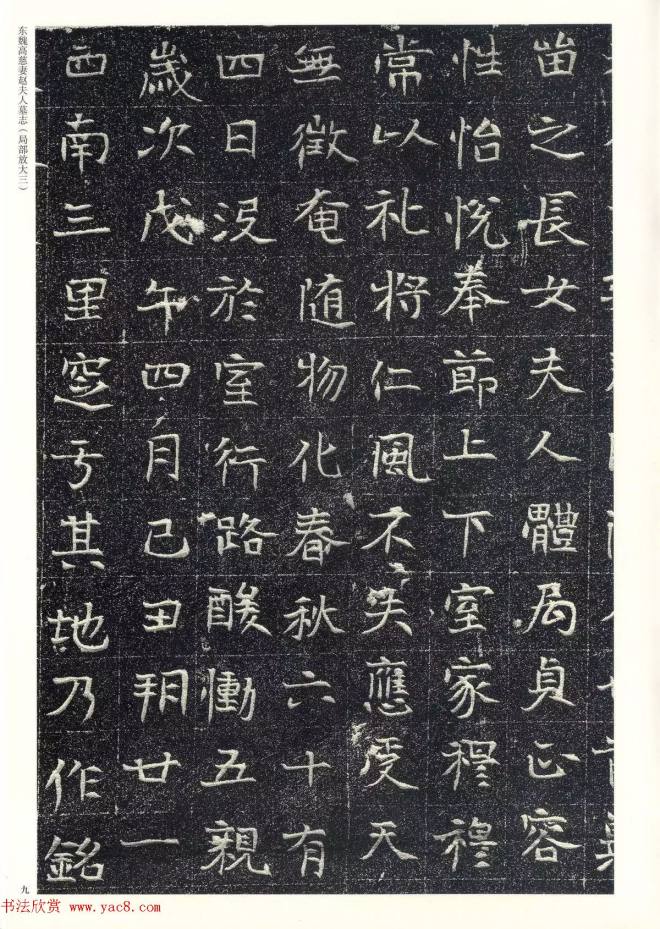 苗之長女夫人體局貞正容
性怡悅奉節上下室家穆穆
常以礼將仁風不失應受天
無徵奄随物化春秋六十有
四日没於室行路酸慟五親
歲次戊午四月己丑朔廿一
西南三里窆于其地乃作銘
东魏高慈妻赵夫人墓志（局部放大三）
九
书法欣赏 www.yac8.com